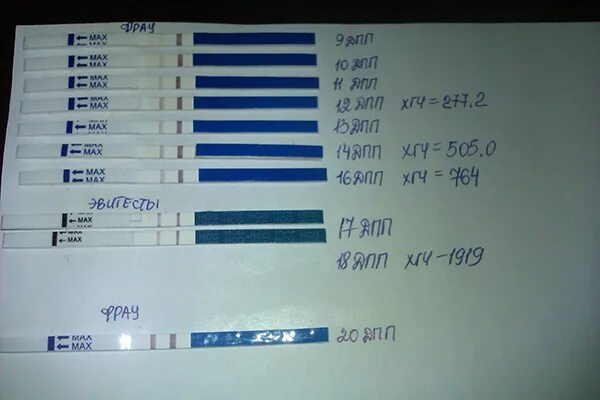 ФРАУ
MAX MAX 9 ДПП
MAX MAX 10 ДПП
MAX MAX 11 ДПП
MAX MAX 12 ДПП ХГЧ = 277,2
MAX MAX 13 ДПП
MAX MAX 14 ДПП ХГЧ = 505,0
MAX MAX 16 ДПП ХГЧ = 764
ЭВИТЕСТЫ
MAX 17 ДПП
MAX
18 ДПП ХГЧ - 1919
ФРАУ
MAX MAX 20 ДПП